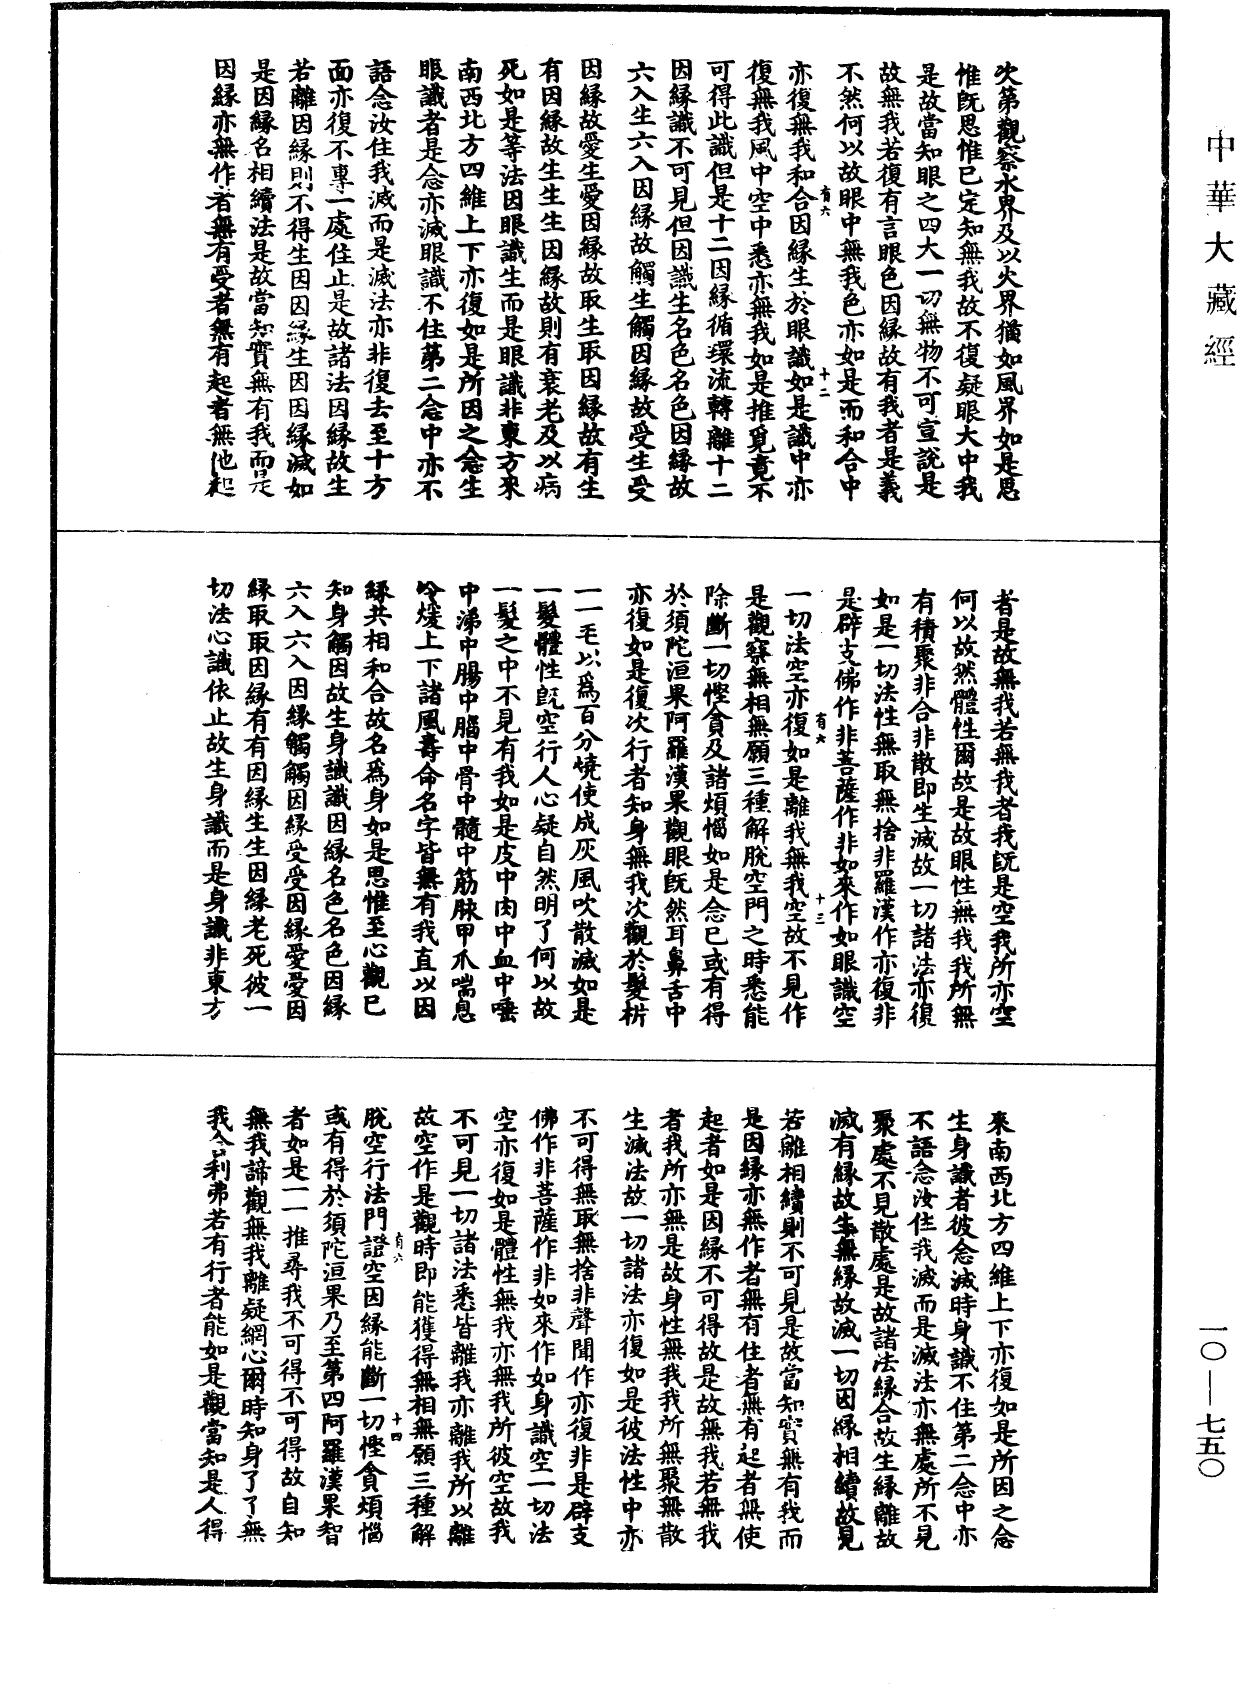 次第觀察水界及以火界猶如風界如是思
惟既思惟已定知無我故不復疑眼大中我
是故當知眼之四大一切無物不可宣說是
故無我若復有言眼色因緣故有我者是義
不然何以故眼中無我色亦如是而和合中
亦復無我和合因緣生於眼識如是識中亦
復無我風中空中悉亦無我如是推覓竟不
可得此識但是十二因緣循環流轉離十二
因緣識不可見但因識生名色名色因緣故
六入生六入因緣故觸生觸因緣故受生受
因緣故愛生愛因緣故取生取因緣故有生
有因緣故生生生因緣故則有衰老及以病
死如是等法因眼識生而是眼識非東方來
南西北方四維上下亦復如是所因之念生
眼識者是念亦滅眼識不住第二念中亦不
語念汝住我滅而是滅法亦非復去至十方
面亦復不專一處住止是故諸法因緣故生
若離因緣則不得生因因緣生因因緣滅如
是因緣名相續法是故當知實無有我而是
因緣亦無作者無有受者無有起者無他起
有六
十二
者是故無我若無我者我既是空我所亦空
何以故然體性爾故是故眼性無我我所無
有積聚非合非散即生滅故一切諸法亦復
如是一切法性無取無捨非羅漢作亦復非
是辟支佛作非菩薩作非如來作如眼識空
一切法空亦復如是離我無我空故不見作
是觀察無相無願三種解脫空門之時悉能
除斷一切慳貪及諸煩惱如是念已或有得
於須陀洹果阿羅漢果觀眼既然耳鼻舌中
亦復如是復次行者知身無我次觀於髮析
一一毛以為百分燒使成灰風吹散滅如是
一髮體性既空行人心疑自然明了何以故
一髮之中不見有我如是皮中肉中血中唾
中涕中腸中腦中骨中髓中筋脉甲爪喘息
冷煖上下諸風壽命名字皆無有我直以因
緣共相和合故名為身如是思惟至心觀已
知身觸因故生身識識因緣名色名色因緣
六入六入因緣觸觸因緣受受因緣愛愛因
緣取取因緣有有因緣生生因緣老死彼一
切法心識依止故生身識而是身識非東方
有六
十三
來南西北方四維上下亦復如是所因之念
生身識者彼念滅時身識不住第二念中亦
不語念汝住我滅而是滅法亦無處所不見
聚處不見散處是故諸法緣合故生緣離故
滅有緣故生無緣故滅一切因緣相續故見
若離相續則不可見是故當知實無有我而
是因緣亦無作者無有住者無有起者無使
起者如是因緣不可得故是故無我若無我
者我所亦無是故身性無我我所無聚無散
生滅法故一切諸法亦復如是彼法性中亦
不可得無取無捨非聲聞作亦復非是辟支
佛作非菩薩作非如來作如身識空一切法
空亦復如是體性無我亦無我所彼空故我
不可見一切諸法悉皆離我亦離我所以離
故空作是觀時即能獲得無相無願三種解
脫空行法門證空因緣能斷一切慳貪煩惱
或有得於須陀洹果乃至第四阿羅漢果智
者如是一一推尋我不可得不可得故自知
無我諦觀無我離疑網心爾時知身了了無
我舍利弗若有行者能如是觀當知是人得
有六
十四
中華大藏經
一〇—七五〇